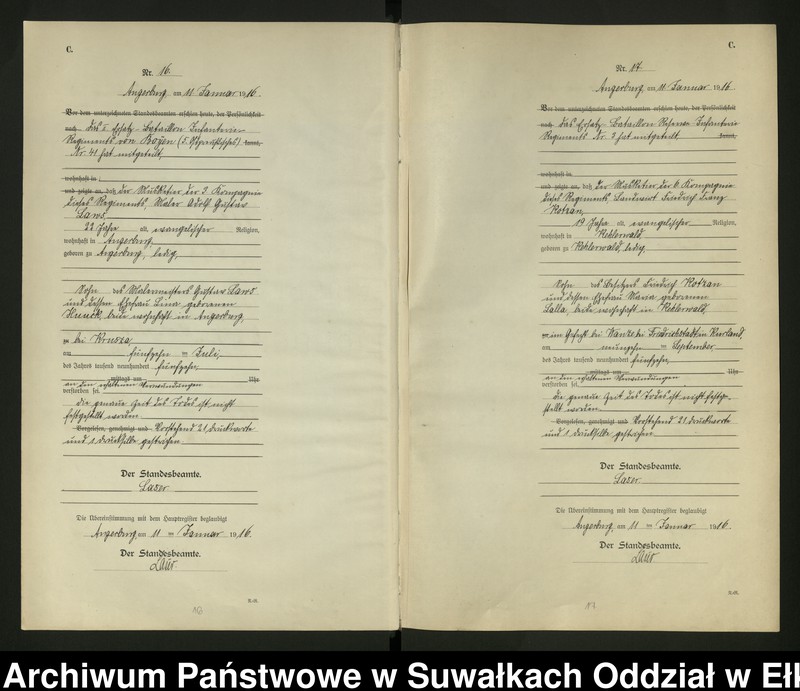 C.
Nr. 16.
Angerburg am 11 Januar 1916.
Vor dem unterzeichneten Standesbeamten erschien heute, der Persönlichkeit
nach Das Ersatz-Bataillon Infanterie
Regiments von Boyen (5. Ostpreußisches) kannt,
Nr. 41 hat mitgeteilt,
wohnhaft in
und zeigte an, daß der Musketier der 3. Kompagnie
dieses Regiments, Maler Adolf Gustav
Laws
22 Jahre alt, evangelischer Religion,
wohnhaft in Angerburg,
geboren zu Angerburg, ledig,
Sohn des Malermeisters Gustav Laws
und dessen Ehefrau Lina geborenen
beide wohnhaft in Angerburg,
bei Krusza,
am fünfzehn ten Juli,
des Jahres tausend neunhundert fünfzehn,
mittags um Uhr
an den erhaltenen Verwundungen
verstorben sei.
Die genaue Zeit des Todes ist nicht
festgestellt worden
Vorgelesen, genehmigt und Vorstehend 21 Druckworte
und 1 Drucksilbe gestrichen.
Der Standesbeamte.
Die Übereinstimmung mit dem Hauptregister beglaubigt
Angerburg, am 11 ten Januar 1916.
Der Standesbeamte.
16
C.
Nr. 17.
Angerburg, am 11 Januar 1916
Vor dem unterzeichneten Standesbeamten erschien heute, der Persönlichkeit
nach Das Ersatz-Bataillon Reserve Infanterie
Regiments Nr. 3 hat mitgeteilt kannt,
wohnhaft in
und zeigte an, daß der Musketier der 6. Kompagnie
dieses Regiments, Landwirt Friedrich Franz
Rotzan,
19 Jahre alt, evangelischer Religion,
wohnhaft in Kehlerwald,
geboren zu Kehlerwald, ledig,
Sohn des Besitzers Friedrich Rotzan
und dessen Ehefrau Maria geborenen
Lalla, beide wohnhaft in Kehlerwald,
im Gefecht bei Kanze bei Friedrichstadt in Kurland,
am neunzehn ten September
des Jahres tausend neunhundert fünfzehn,
mittags um Uhr
an den erhaltenen Verwundungen
verstorben sei.
Die genaue Zeit des Todes ist nicht festge-
stellt worden
Vorgelesen, genehmigt und Vorstehend 21 Druckworte
und 1 Drucksilbe gestrichen
Der Standesbeamte.
Die Übereinstimmung mit dem Hauptregister beglaubigt
Angerburg, am 11 ten Januar 1916.
Der Standesbeamte.
17
Archiwum Państwowe w Suwałkach Oddział w Ełk